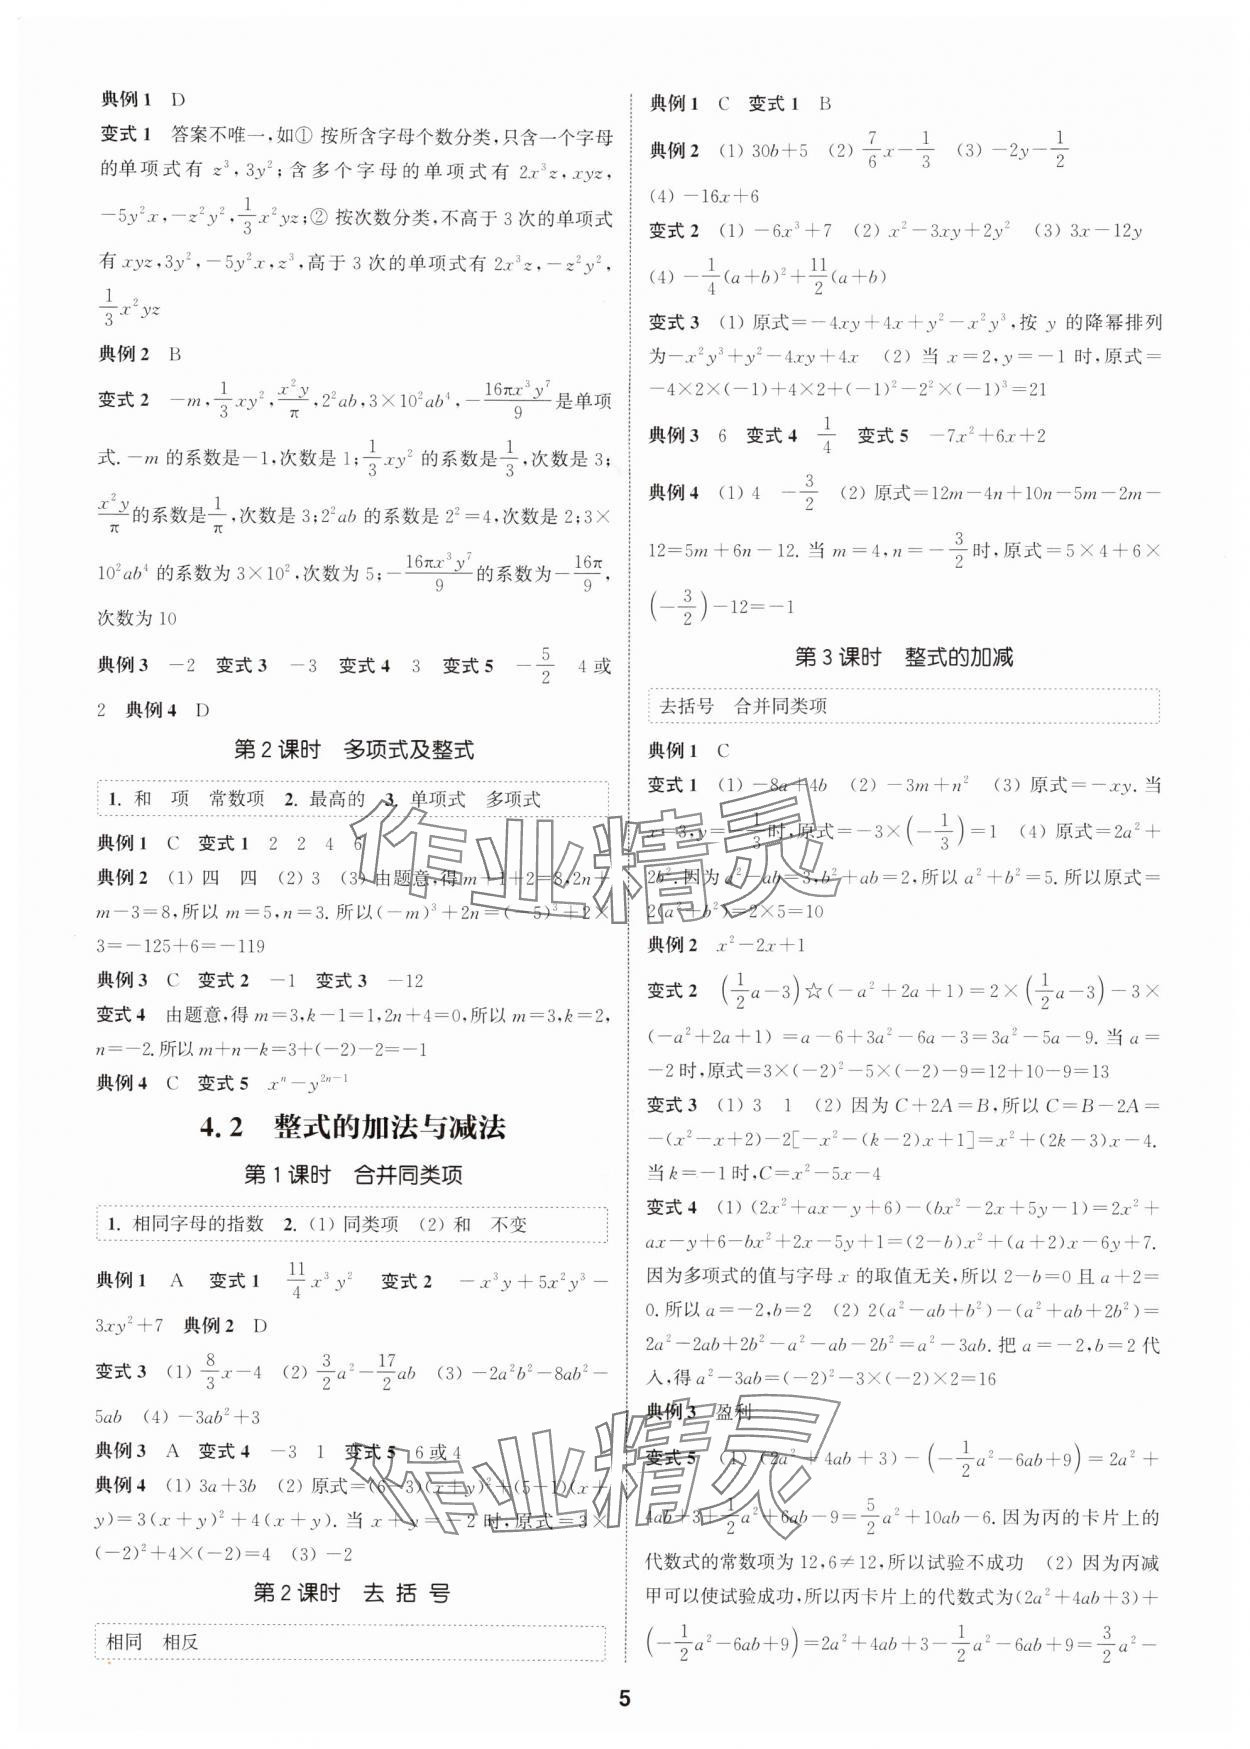 典例1 D
变式1 答案不唯一,如① 按所含字母个数分类,只含一个字母
的单项式有 z³,3y²;含多个字母的单项式有 2x³z,xyz,
−5y²x,−z²y²,1/3x²yz;② 按次数分类,不高于3次的单项式
有 xyz,3y²,−5y²x,z³,高于3次的单项式有 2x³z,−z²y²,
1/3x²yz
典例2 B
变式2 −m,1/3xy²,x²y/π,2²ab,3×10²ab⁴,−16πx³y⁷/9是单项
式.−m的系数是−1,次数是1;1/3xy²的系数是1/3,次数是3;
x²y/π的系数是1/π,次数是3;2²ab的系数是2²=4,次数是2;3×
10²ab⁴的系数为3×10²,次数为5;−16πx³y⁷/9的系数为−16π/9,
次数为10
典例3 −2 变式3 −3 变式4 3 变式5 −5/2 4或
2 典例4 D
第2课时 多项式及整式
1. 和 项 常数项 2. 最高的 3. 单项式 多项式
典例1 C 变式1 2 2 4 6
典例2 (1) 四 四 (2) 3 (3) 由题意,得m+1+2=8,2n+
m−3=8,所以m=5,n=3.所以(−m)³+2n=(−5)³+2×
3=−125+6=−119
典例3 C 变式2 −1 变式3 −12
变式4 由题意,得m=3,k−1=1,2n+4=0,所以m=3,k=2,
n=−2.所以m+n−k=3+(−2)−2=−1
典例4 C 变式5 xⁿ−y²ⁿ⁻¹
4.2 整式的加法与减法
第1课时 合并同类项
1. 相同字母的指数 2. (1) 同类项 (2) 和 不变
典例1 A 变式1 11/4x³y² 变式2 −x³y+5x²y³−
3xy²+7 典例2 D
变式3 (1) 8/3x−4 (2) 3/2a²−17/2ab (3) −2a²b²−8ab²−
5ab (4) −3ab²+3
典例3 A 变式4 −3 1 变式5 6或4
典例4 (1) 3a+3b (2) 原式=(6−3)(x+y)²+(5−1)(x+
y)=3(x+y)²+4(x+y).当x+y=−2时,原式=3×
(−2)²+4×(−2)=4 (3) −2
第2课时 去括号
相同 相反
典例1 C 变式1 B
典例2 (1) 30b+5 (2) 7/6x−1/3 (3) −2y−1/2
(4) −16x+6
变式2 (1) −6x³+7 (2) x²−3xy+2y² (3) 3x−12y
(4) −1/4(a+b)²+11/2(a+b)
变式3 (1) 原式=−4xy+4x+y²−x²y³,按y的降幂排列
为−x²y³+y²−4xy+4x (2) 当x=2,y=−1时,原式=
−4×2×(−1)+4×2+(−1)²−2²×(−1)³=21
典例3 6 变式4 1/4 变式5 −7x²+6x+2
典例4 (1) 4 −3/2 (2) 原式=12m−4n+10n−5m−2m−
12=5m+6n−12.当m=4,n=−3/2时,原式=5×4+6×
(−3/2)−12=−1
第3课时 整式的加减
去括号 合并同类项
典例1 C
变式1 (1) −8a+4b (2) −3m+n² (3) 原式=−xy.当
x=3,y=−1/3时,原式=−3×(−1/3)=1 (4) 原式=2a²+
2b².因为a²−ab=3,b²+ab=2,所以a²+b²=5.所以原式=
2(a²+b²)=2×5=10
典例2 x²−2x+1
变式2 (1/2a−3)☆(−a²+2a+1)=2×(1/2a−3)−3×
(−a²+2a+1)=a−6+3a²−6a−3=3a²−5a−9.当a=
−2时,原式=3×(−2)²−5×(−2)−9=12+10−9=13
变式3 (1) 3 1 (2) 因为C+2A=B,所以C=B−2A=
−(x²−x+2)−2[−x²−(k−2)x+1]=x²+(2k−3)x−4.
当k=−1时,C=x²−5x−4
变式4 (1) (2x²+ax−y+6)−(bx²−2x+5y−1)=2x²+
ax−y+6−bx²+2x−5y+1=(2−b)x²+(a+2)x−6y+7.
因为多项式的值与字母x的取值无关,所以2−b=0且a+2=
0.所以a=−2,b=2 (2) 2(a²−ab+b²)−(a²+ab+2b²)=
2a²−2ab+2b²−a²−ab−2b²=a²−3ab.把a=−2,b=2代
入,得a²−3ab=(−2)²−3×(−2)×2=16
典例3 盈利
变式5 (1) (2a²+4ab+3)−(−1/2a²−6ab+9)=2a²+
4ab+3+1/2a²+6ab−9=5/2a²+10ab−6.因为丙的卡片上的
代数式的常数项为12,6≠12,所以试验不成功 (2) 因为丙减
甲可以使试验成功,所以丙卡片上的代数式为(2a²+4ab+3)+
(−1/2a²−6ab+9)=2a²+4ab+3−1/2a²−6ab+9=3/2a²−
5
作业精灵
作业精灵